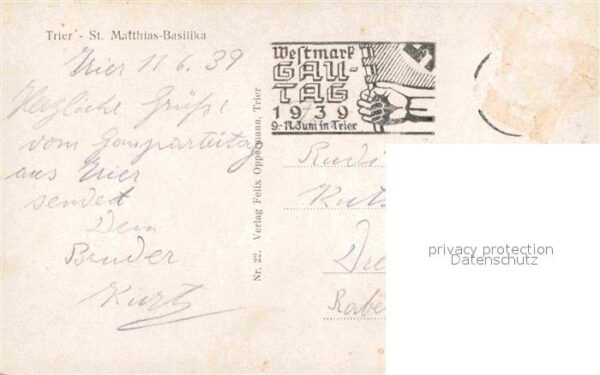 Trier - St. Matthias-Basilika
Trier 11.6.39
Herzliche Grüße
vom Gauparteitag
aus Trier
sendet
Dein
Bruder
Kurt
Westmark
GAU-
TAG
1939
9.-11. Juni in Trier
Nr. 22. Verlag Felix Oppermann, Trier
Rudi
Dre
Rabe
privacy protection
Datenschutz